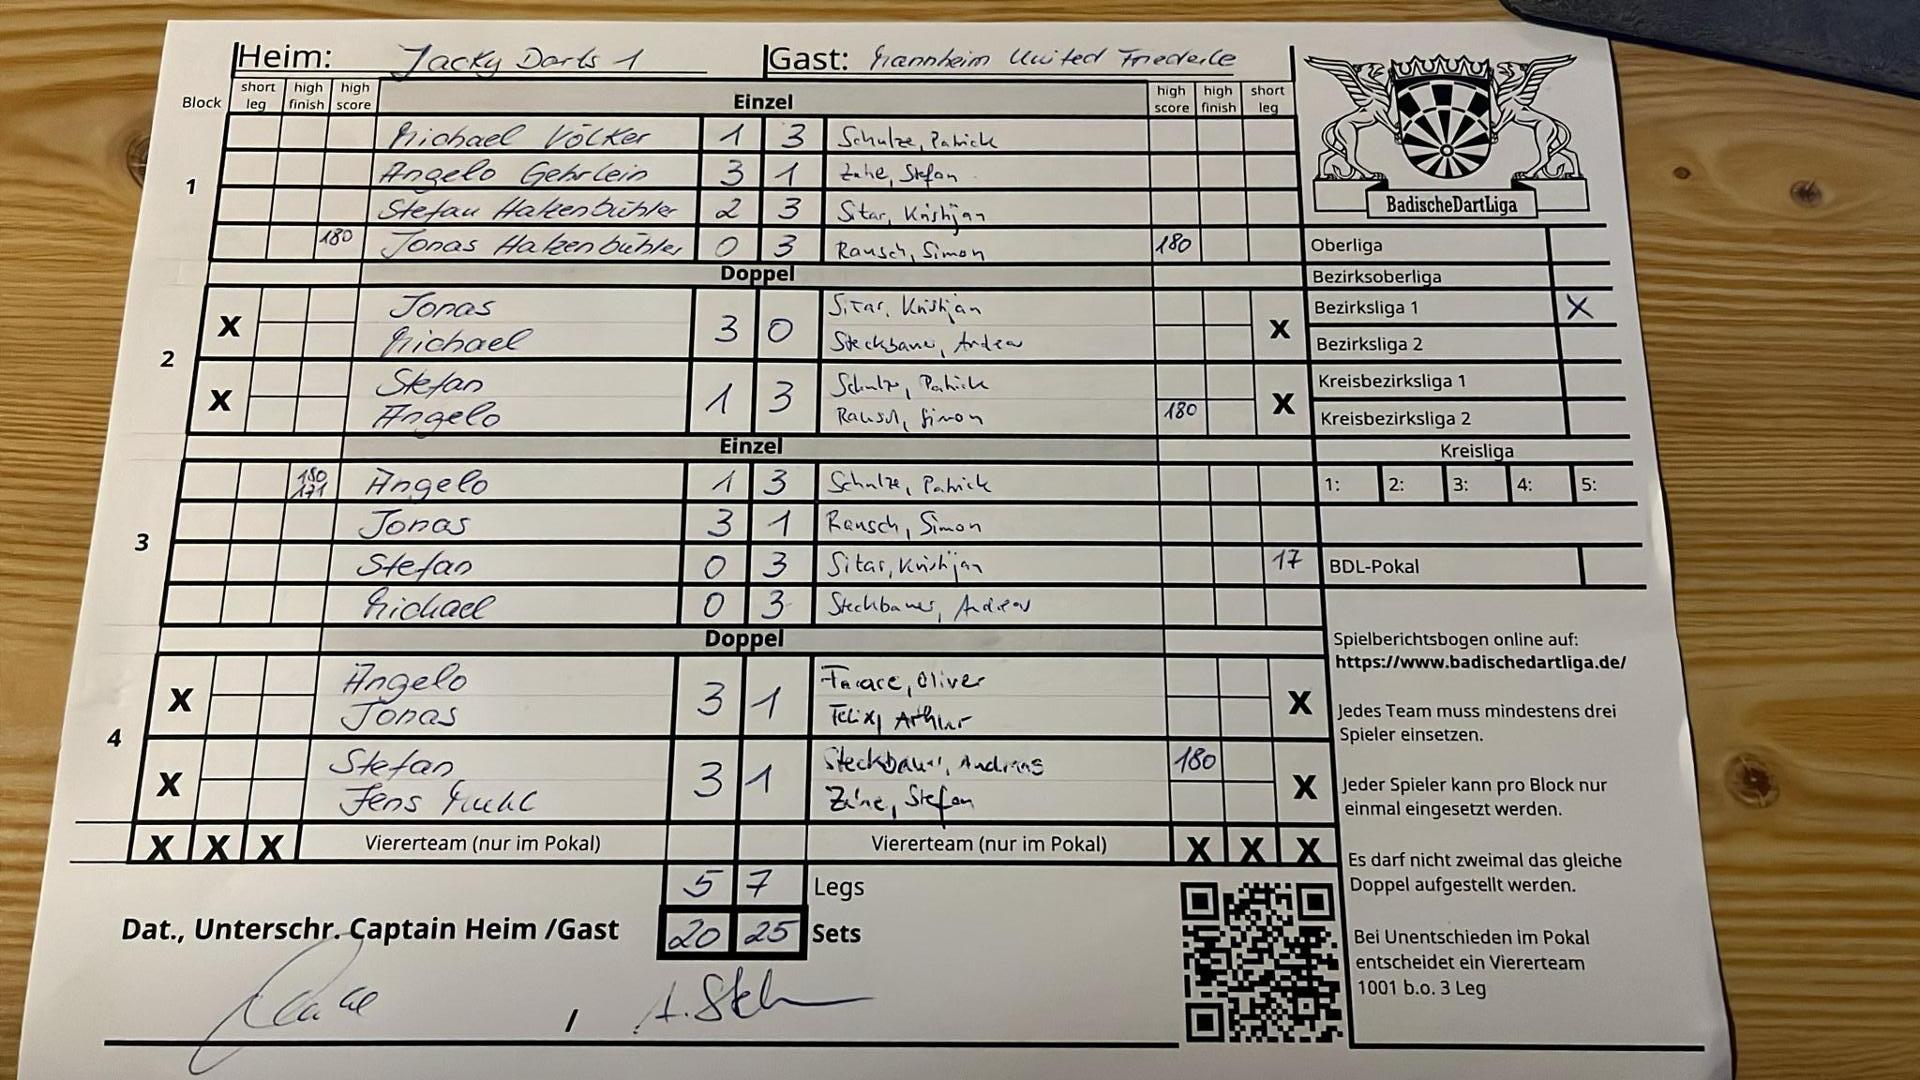 Heim: Jacky Darts 1 Gast: Mannheim United Friederle
Block short leg high finish high score Einzel high score high finish short leg
1
Michael Völker 1 3 Schulze, Patrick
Angelo Gehrlein 3 1 Zähe, Stefan
Stefan Hatzenbühler 2 3 Sitar, Kristijan
180 Jonas Hatzenbühler 0 3 Rausch, Simon 180
Doppel
2
X Jonas 3 0 Sitar, Kristijan X
Michael Steckbauer, Andreas
X Stefan 1 3 Schulze, Patrick X
Angelo Rausch, Simon 180
Einzel
3
180 171 Angelo 1 3 Schulze, Patrick
Jonas 3 1 Rausch, Simon
Stefan 0 3 Sitar, Kristijan 17
Michael 0 3 Steckbauer, Andreas
Doppel
4
X Angelo 3 1 Farace, Oliver X
Jonas Felix, Arthur
X Stefan 3 1 Steckbauer, Andreas 180 X
Jens Zähe, Stefan
X X X Viererteam (nur im Pokal) Viererteam (nur im Pokal) X X X
5 7 Legs
Dat., Unterschr. Captain Heim /Gast 20 25 Sets
/
BadischeDartLiga
Oberliga
Bezirksoberliga
Bezirksliga 1 X
Bezirksliga 2
Kreisbezirksliga 1
Kreisbezirksliga 2
Kreisliga
1: 2: 3: 4: 5:
BDL-Pokal
Spielberichtsbogen online auf:
https://www.badischedartliga.de/
Jedes Team muss mindestens drei
Spieler einsetzen.
Jeder Spieler kann pro Block nur
einmal eingesetzt werden.
Es darf nicht zweimal das gleiche
Doppel aufgestellt werden.
Bei Unentschieden im Pokal
entscheidet ein Viererteam
1001 b.o. 3 Leg